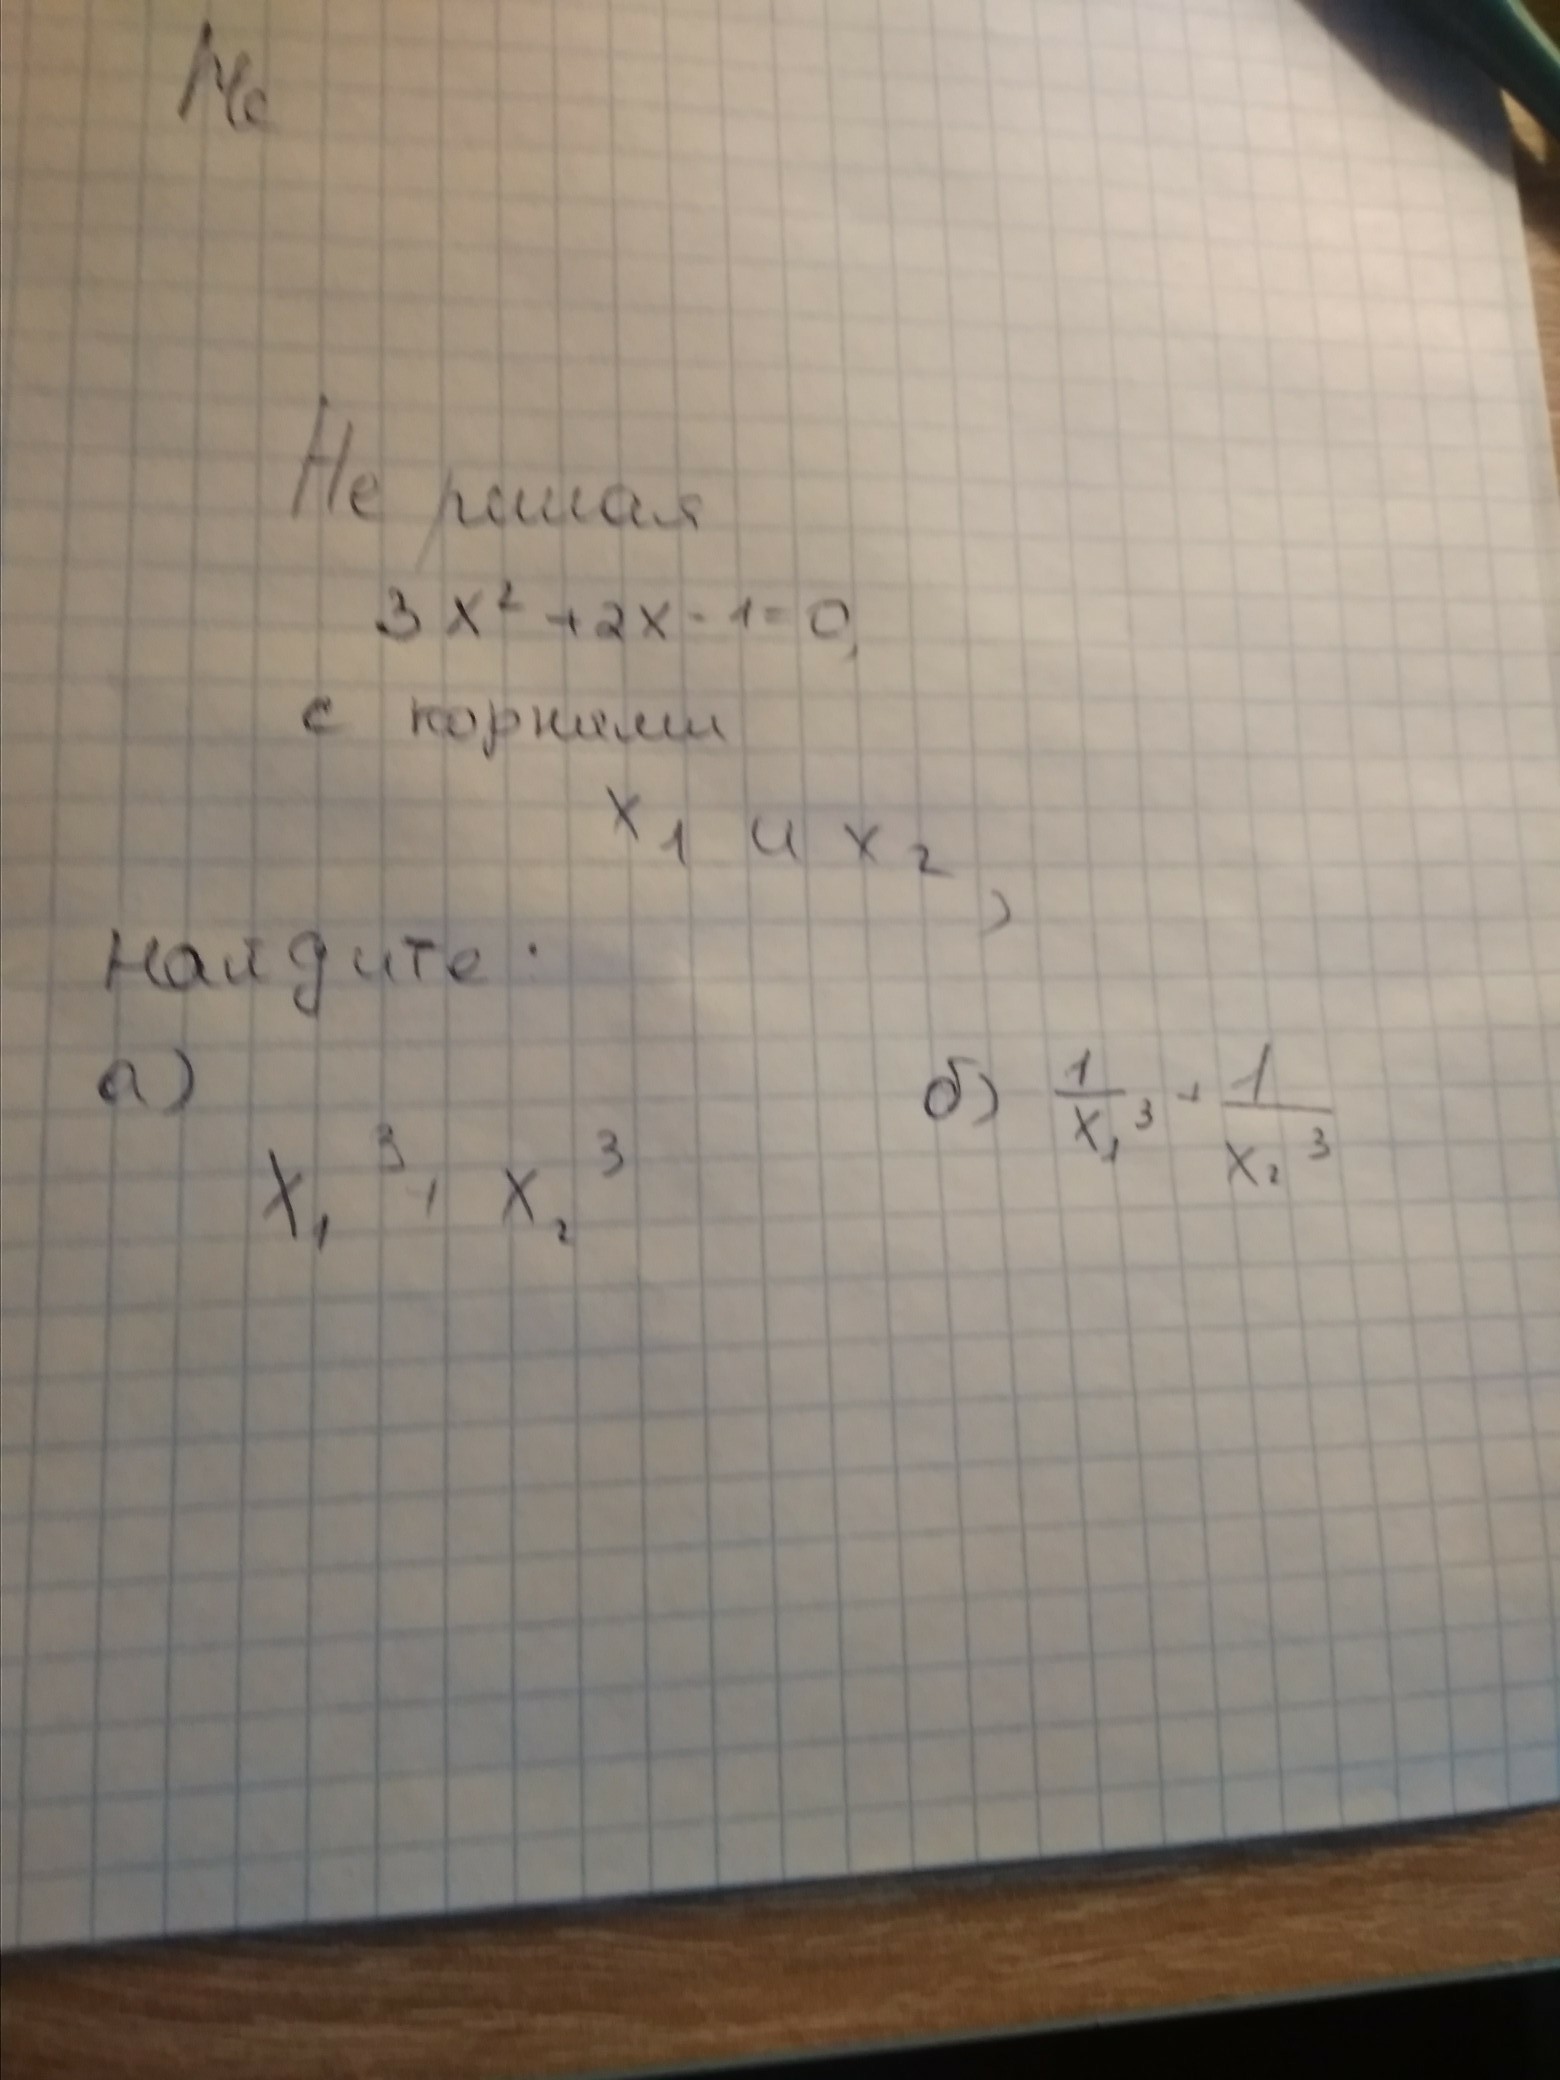 Не
Не решая
3x² + 2x - 1 = 0,
с корнями
x₁ и x₂,
найдите:
а) x₁³ + x₂³
б) 1/x₁³ + 1/x₂³